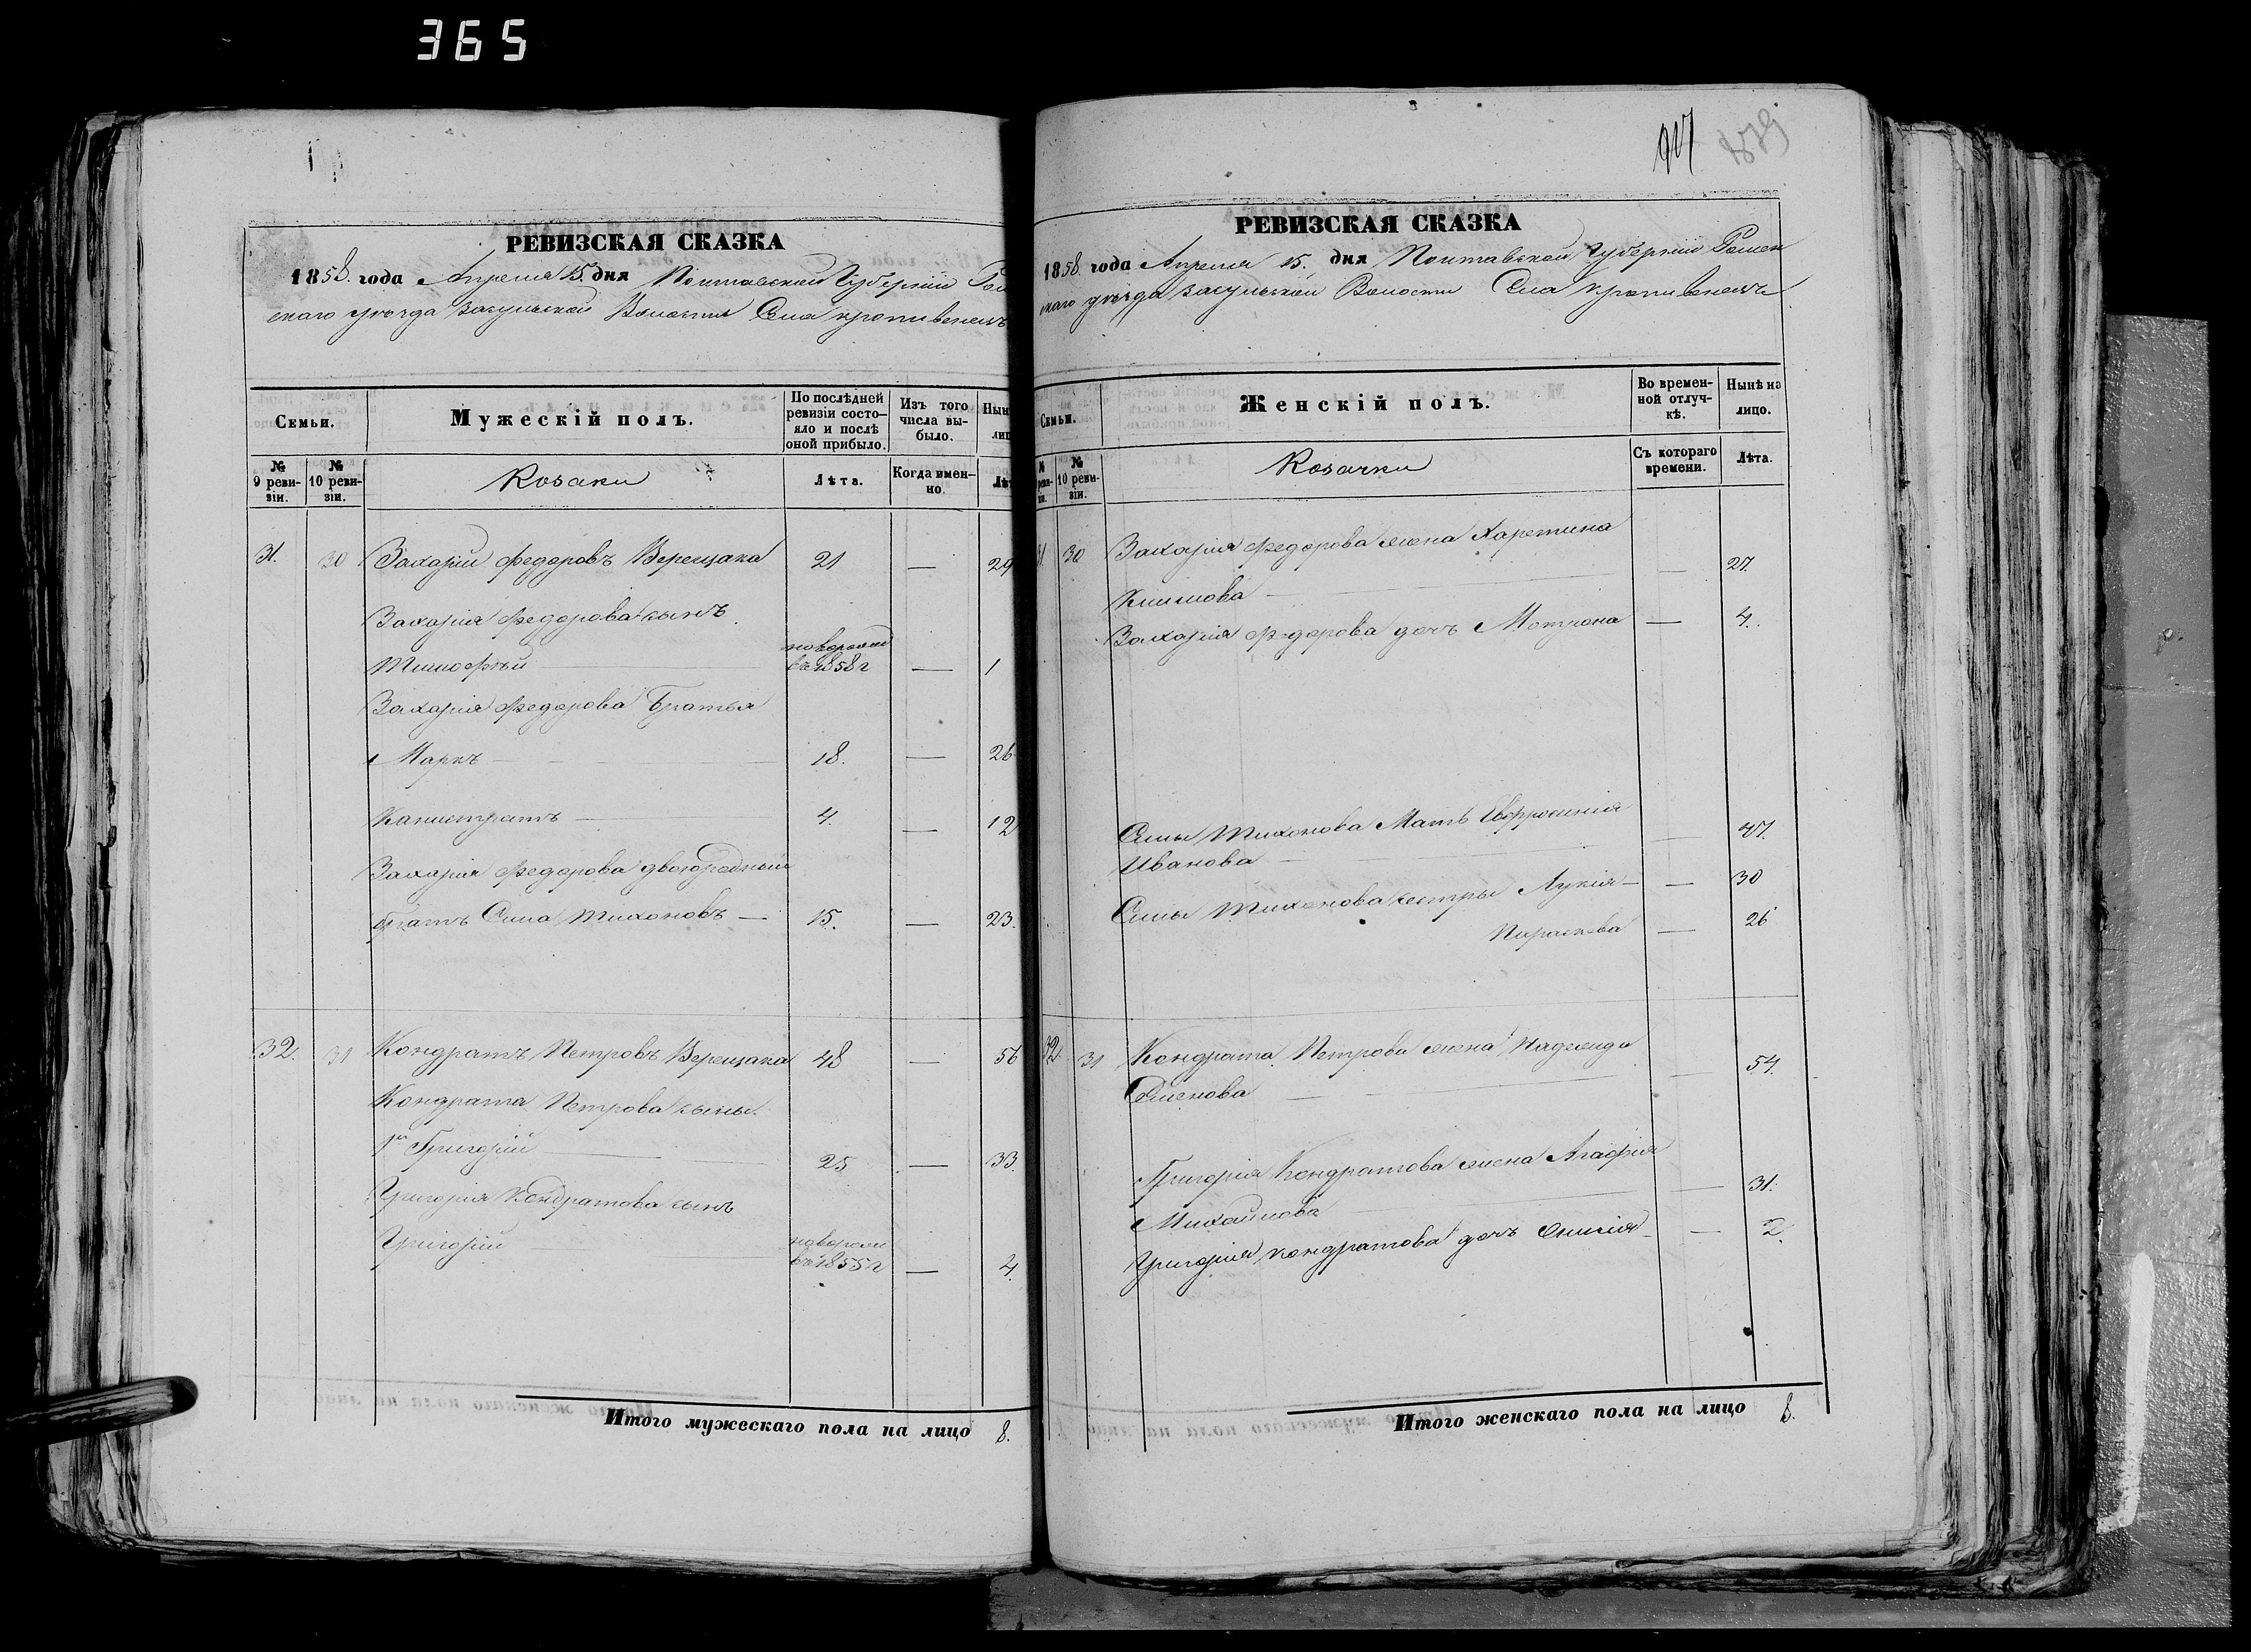 365
РЕВИЗСКАЯ СКАЗКА
1858. года Апреля 15. дня Полтавской Губерніи Ром
скаго уѣзда Засульской Волости Села Кропивенецъ
Семьи.
Мужескій полъ.
По послѣдней ревизіи состояло и послѣ оной прибыло.
Изъ того числа выбыло.
Нын
лиц
№ 9 ревизіи.
№ 10 ревизіи.
Козаки
Лѣта.
Когда именно.
Лѣт
31. 30 Захарій Федоровъ Верещака 21 — 29
Захарія Федорова сынъ
Тимофѣй новорожд въ 1858 г — 1
Захарія Федорова Братья
Маркъ — 18. — 26
Калистратъ — 4. — 12
Захарія Федорова двоюродный
братъ Сила Тихоновъ — 15. — 23.
32. 31 Кондратъ Петровъ Верещака 48 — 56
Кондрата Петрова сыны
1й Григорій 25 — 33.
Григорія Кондратова сынъ
Григорій новорож въ 1855 г — 4.
Итого мужескаго пола на лицо 8.
РЕВИЗСКАЯ СКАЗКА
1858. года Апреля 15. дня Полтавской Губерніи Ромен
скаго уѣзда Засульской Волости Села Кропивенецъ
Семьи.
Женскій полъ.
Во временной отлучкѣ.
Нынѣ на лицо.
№ 10 ревизіи.
Козачки
Съ котораго времени.
Лѣта.
31 30 Захарія Федорова жена Харетина
Климова — — 27.
Захарія Федорова дочъ Мотрона — 4.
Силы Тихонова Мать Евфросинія
Иванова — — 47.
Силы Тихонова сестры Лукія — — 30
Параскева — 26
32. 31 Кондрата Петрова жена Надежда
Семенова — — 54.
Григорія Кондратова жена Агафія
Михайлова — 31.
Григорія Кондратова дочъ Онисія — — 2.
Итого женскаго пола на лицо 8.